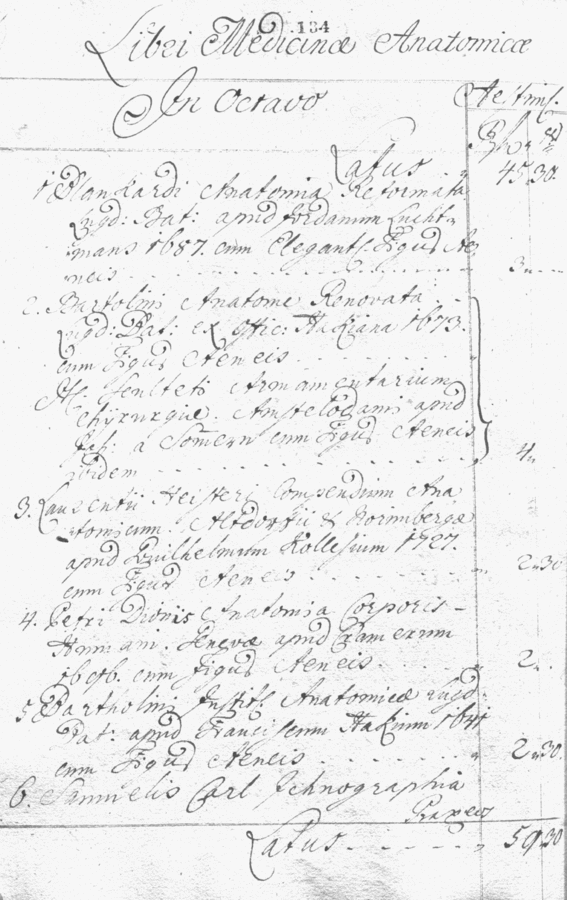 134
Libri Medicinæ Anatomicæ
In Octavo
Aestim.
Latus
45 30.
1. Blankardi Anatomia Reformata
Lugd: Bat: apud Jordanum Lucht-
mans 1687. cum Elegantß. Figuris Ae
neis 3
2. Bartolini Anatome Renovata
Lugd: Bat: ex Offic: Hackiana 1673.
cum Figuris Aeneis
Chyrurgiæ. Amstelodami apud
à Somern cum Figuris Aeneis
ibidem 4
3. Laurentii Heisteri Compendium Ana
tomicum. Altdorfii & Norimbergæ
apud Guilhelmum Kollesium 1727.
cum Figuris Aeneis 2 30
4. Petri Dionis Anatomia Corporis
Humani. Genevæ apud Cramerum
1696. cum Figuris Aeneis 2
5. Bartholini Institß. Anatomicæ Lugd:
Bat: apud Franciscum Hackium 1641
cum Figuris Aeneis 2 30.
6. Samuelis Carl Ichnographia
Praxeos
Latus 59 30